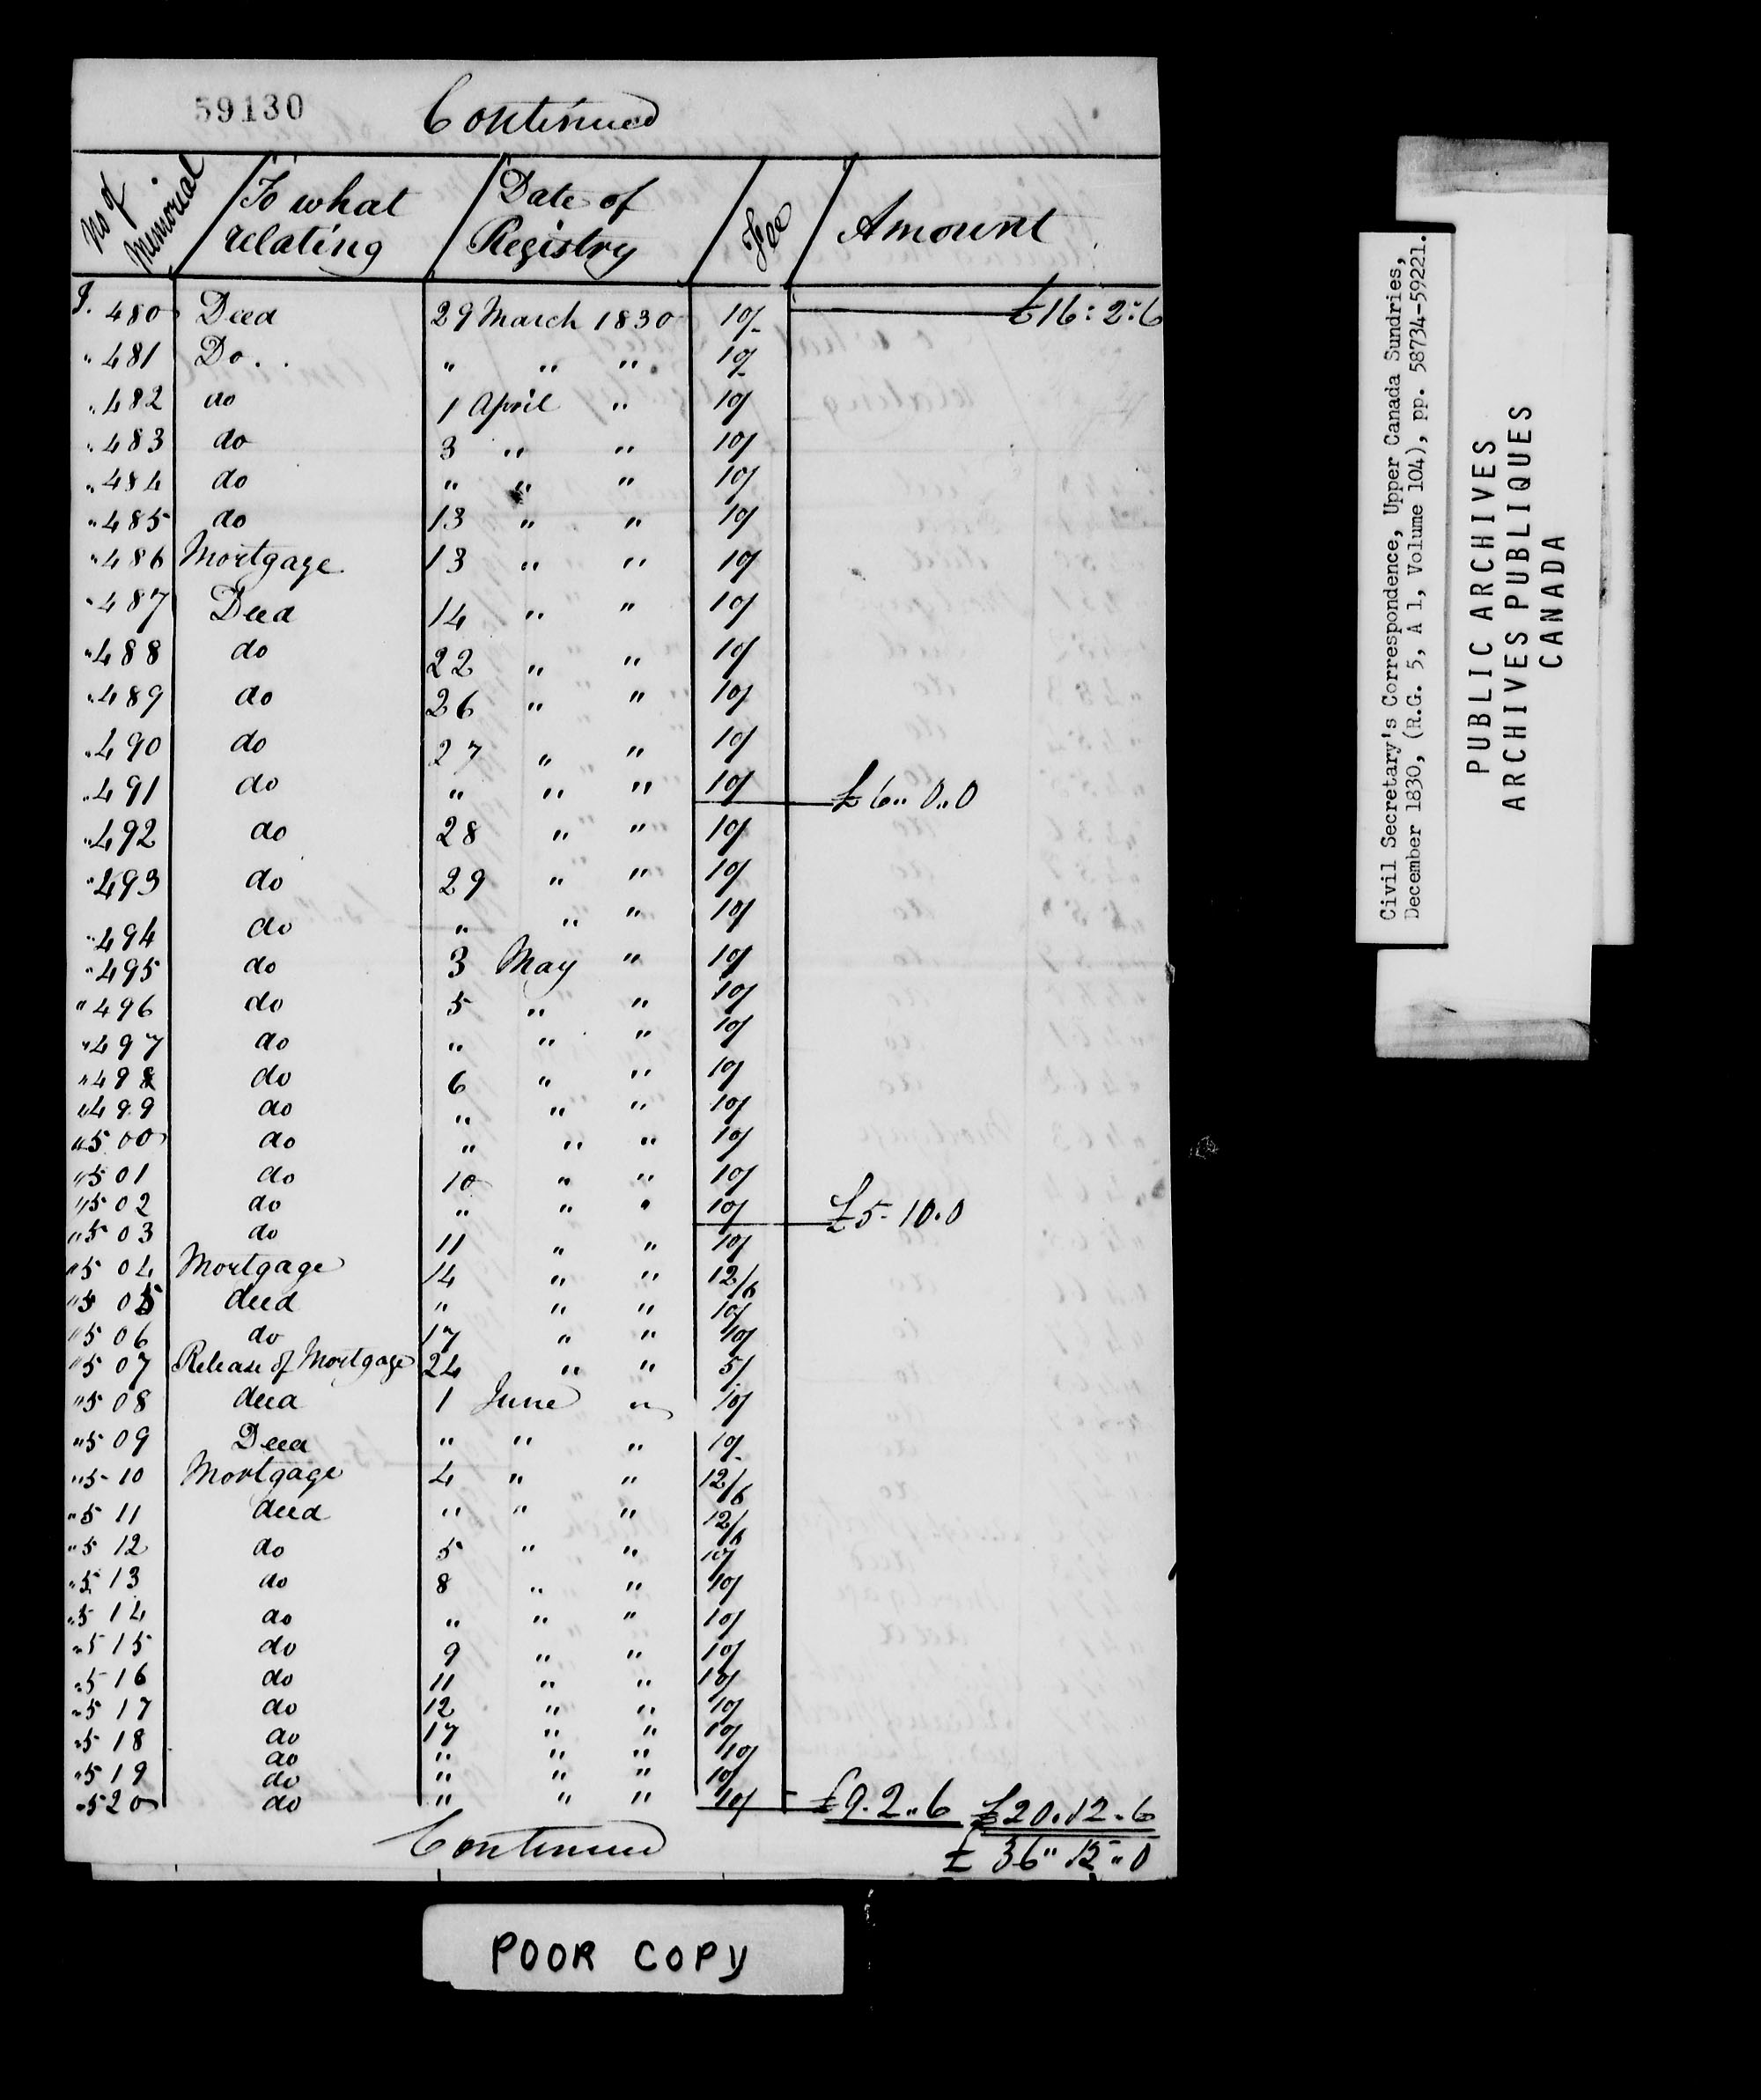 59130 Continued
No of Memorial To what relating Date of Registry Fee Amount
I. 480 Deed 29 March 1830 10/- £16:2:6
" 481 Do. " " " 10/-
" 482 do 1 April " 10/
" 483 do 3 " " 10/
" 484 do " " " 10/
" 485 do 13 " " 10/
" 486 Mortgage 13 " " 10/
" 487 Deed 14 " " 10/
" 488 do 22 " " 10/
" 489 do 26 " " 10/
" 490 do 27 " " 10/
" 491 do " " " 10/ £6"0"0
" 492 do 28 " " 10/
" 493 do 29 " " 10/
" 494 do " " " 10/
" 495 do 3 May " 10/
" 496 do 5 " " 10/
" 497 do " " " 10/
" 498 do 6 " " 10/
" 499 do " " " 10/
" 500 do " " " 10/
" 501 do 10 " " 10/
" 502 do " " " 10/ £5-10.0
" 503 do 11 " " 10/
" 504 Mortgage 14 " " 12/6
" 505 deed " " " 10/
" 506 do 17 " " 10/
" 507 Release of Mortgage 24 " " 5/
" 508 deed 1 June " 10/
" 509 Deed " " " 10/-
" 510 Mortgage 4 " " 12/6
" 511 deed " " " 12/6
" 512 do 5 " " 10/
" 513 do 8 " " 10/
" 514 do " " " 10/
" 515 do 9 " " 10/
" 516 do 11 " " 10/
" 517 do 12 " " 10/
" 518 do 17 " " 10/
do " " " 10/
" 519 do " " " 10/
" 520 do " " " 10/ £9.2"6 £20.12.6
Continued £36"15"0
POOR COPY
Civil Secretary's Correspondence, Upper Canada Sundries,
December 1830, (R.G. 5, A 1, Volume 104), pp. 58734-59221.
PUBLIC ARCHIVES
ARCHIVES PUBLIQUES
CANADA